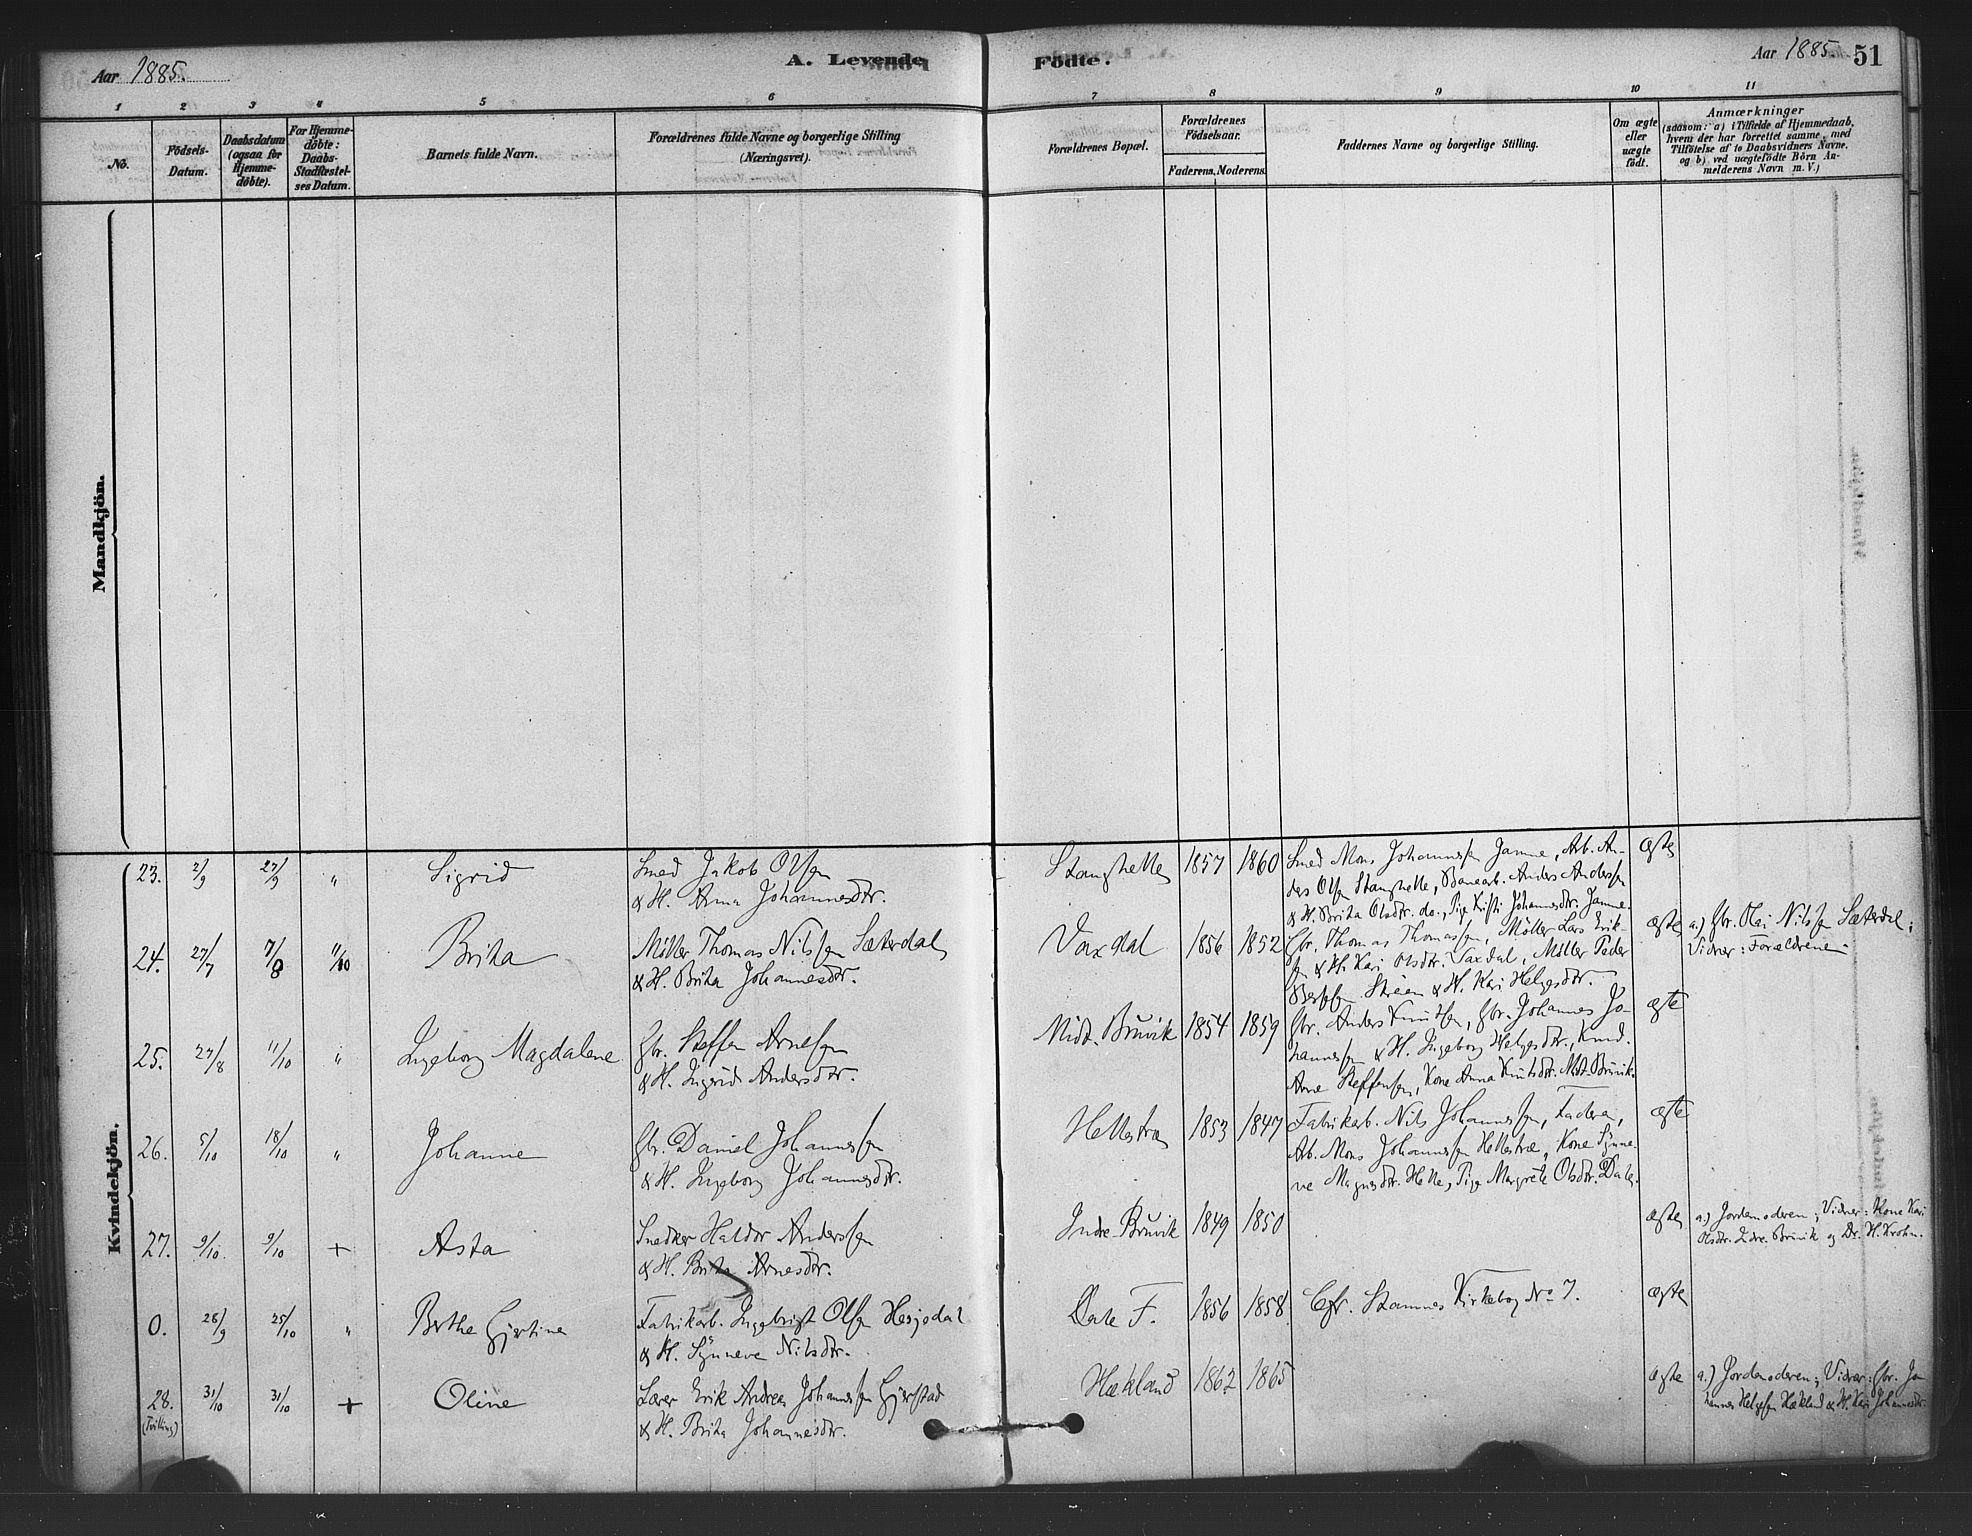 Aar 1885.
A. Levende
Födte.
Aar 1885
51
1 2 3 4 5 6 7 8 9 10 11
No.
Födsels-
Datum.
Daabsdatum
(ogsaa for
Hjemme-
döbte).
For Hjemme-
döbte:
Daabs-
Stadfæstel-
ses Datum.
Barnets fulde Navn.
Forældrenes fulde Navne og borgerlige Stilling
(Næringsvei).
Forældrenes Bopæl.
Forældrenes
Födselsaar.
Faderens. Moderens.
Faddernes Navne og borgerlige Stilling.
Om ægte
eller
uægte
födt.
Anmærkninger
(saasom: a) i Tilfælde af Hjemmedaab,
hvem der har forrettet samme, med
Tilföielse af to Daabsvidners Navne,
og b) ved uægtefödte Börn An-
melderens Navn m. V.)
Mandkjön.
Kvindekjön.
23. 2/9 27/9 " Sigrid
Smed Jakob Olsen
& H. Anna Johannesdtr.
Stanghelle 1857 1860
Smed Mons Johannessen Jamne, Arb. An-
ders Olsen Stanghelle, Banearb. Anders Anderssen
& H. Brita Olsdtr. do., Pige Kristi Johannesdtr. Jamne.
ægte
24. 27/7 7/8 11/10 Brita
Møller Thomas Nilssen Sæterdal
& H. Brita Johannesdtr.
Vaxdal 1856 1852
Gbr. Thomas Thomassen, Møller Lars Erik-
sen & H. Kari Olsdtr. Vaxdal, Møller Peder
& H. Kari Helgesdtr.
ægte
a.) Gbr. Olai Nilssen Sæterdal;
Vidner: Forældrene
25. 27/8 11/10 " Ingeborg Magdalene
Gbr. Steffen Arnesen
& H. Ingrid Andersdtr.
Midt-Bruvik 1854 1859
Gbr. Anders Knutsen, Gbr. Johannes Jo-
hannessen & H. Ingeborg Helgesdtr.,
Arne Steffensen, Kone Anna Knutsdtr. Midt-Bruvik.
ægte
26. 5/10 18/10 " Johanne
Gbr. Daniel Johannessen
& H. Ingeborg Johannesdtr.
Hellestræ 1853 1847
Fabrikarb. Nils Johannessen, Faderen,
Arb. Mons Johannessen Hellestræ, Kone Synne-
ve Magnesdtr. Helle, Pige Margrete Olsdtr. Dale.
ægte
27. 9/10 9/10 + Asta
Snedker Haldor Anderssen
& H. Brita Arnesdtr.
Indre-Bruvik 1849 1850
ægte
a.) Jordemoderen; Vidner: Kone Kari
Olsdtr. Indre Bruvik og Dr. H. Krohn.
0. 28/9 25/10 " Berthe Gjertine
Fabrikarb. Ingebrigt Olsen Hesjedal
& H. Synneve Nilsdtr.
Dale F. 1856 1858
Cfr. Stamnes Kirkebog No 7.
ægte
28. 31/10 31/10 + Oline
(Tvilling)
Lærer Erik Andreas Johannessen Gjerstad
& H. Brita Johannesdtr.
Hækland 1862 1865
ægte
a.) Jordemoderen; Vidner: Gbr. Jo-
hannes Helgesen Hækland & H. Kari Johannesdtr.